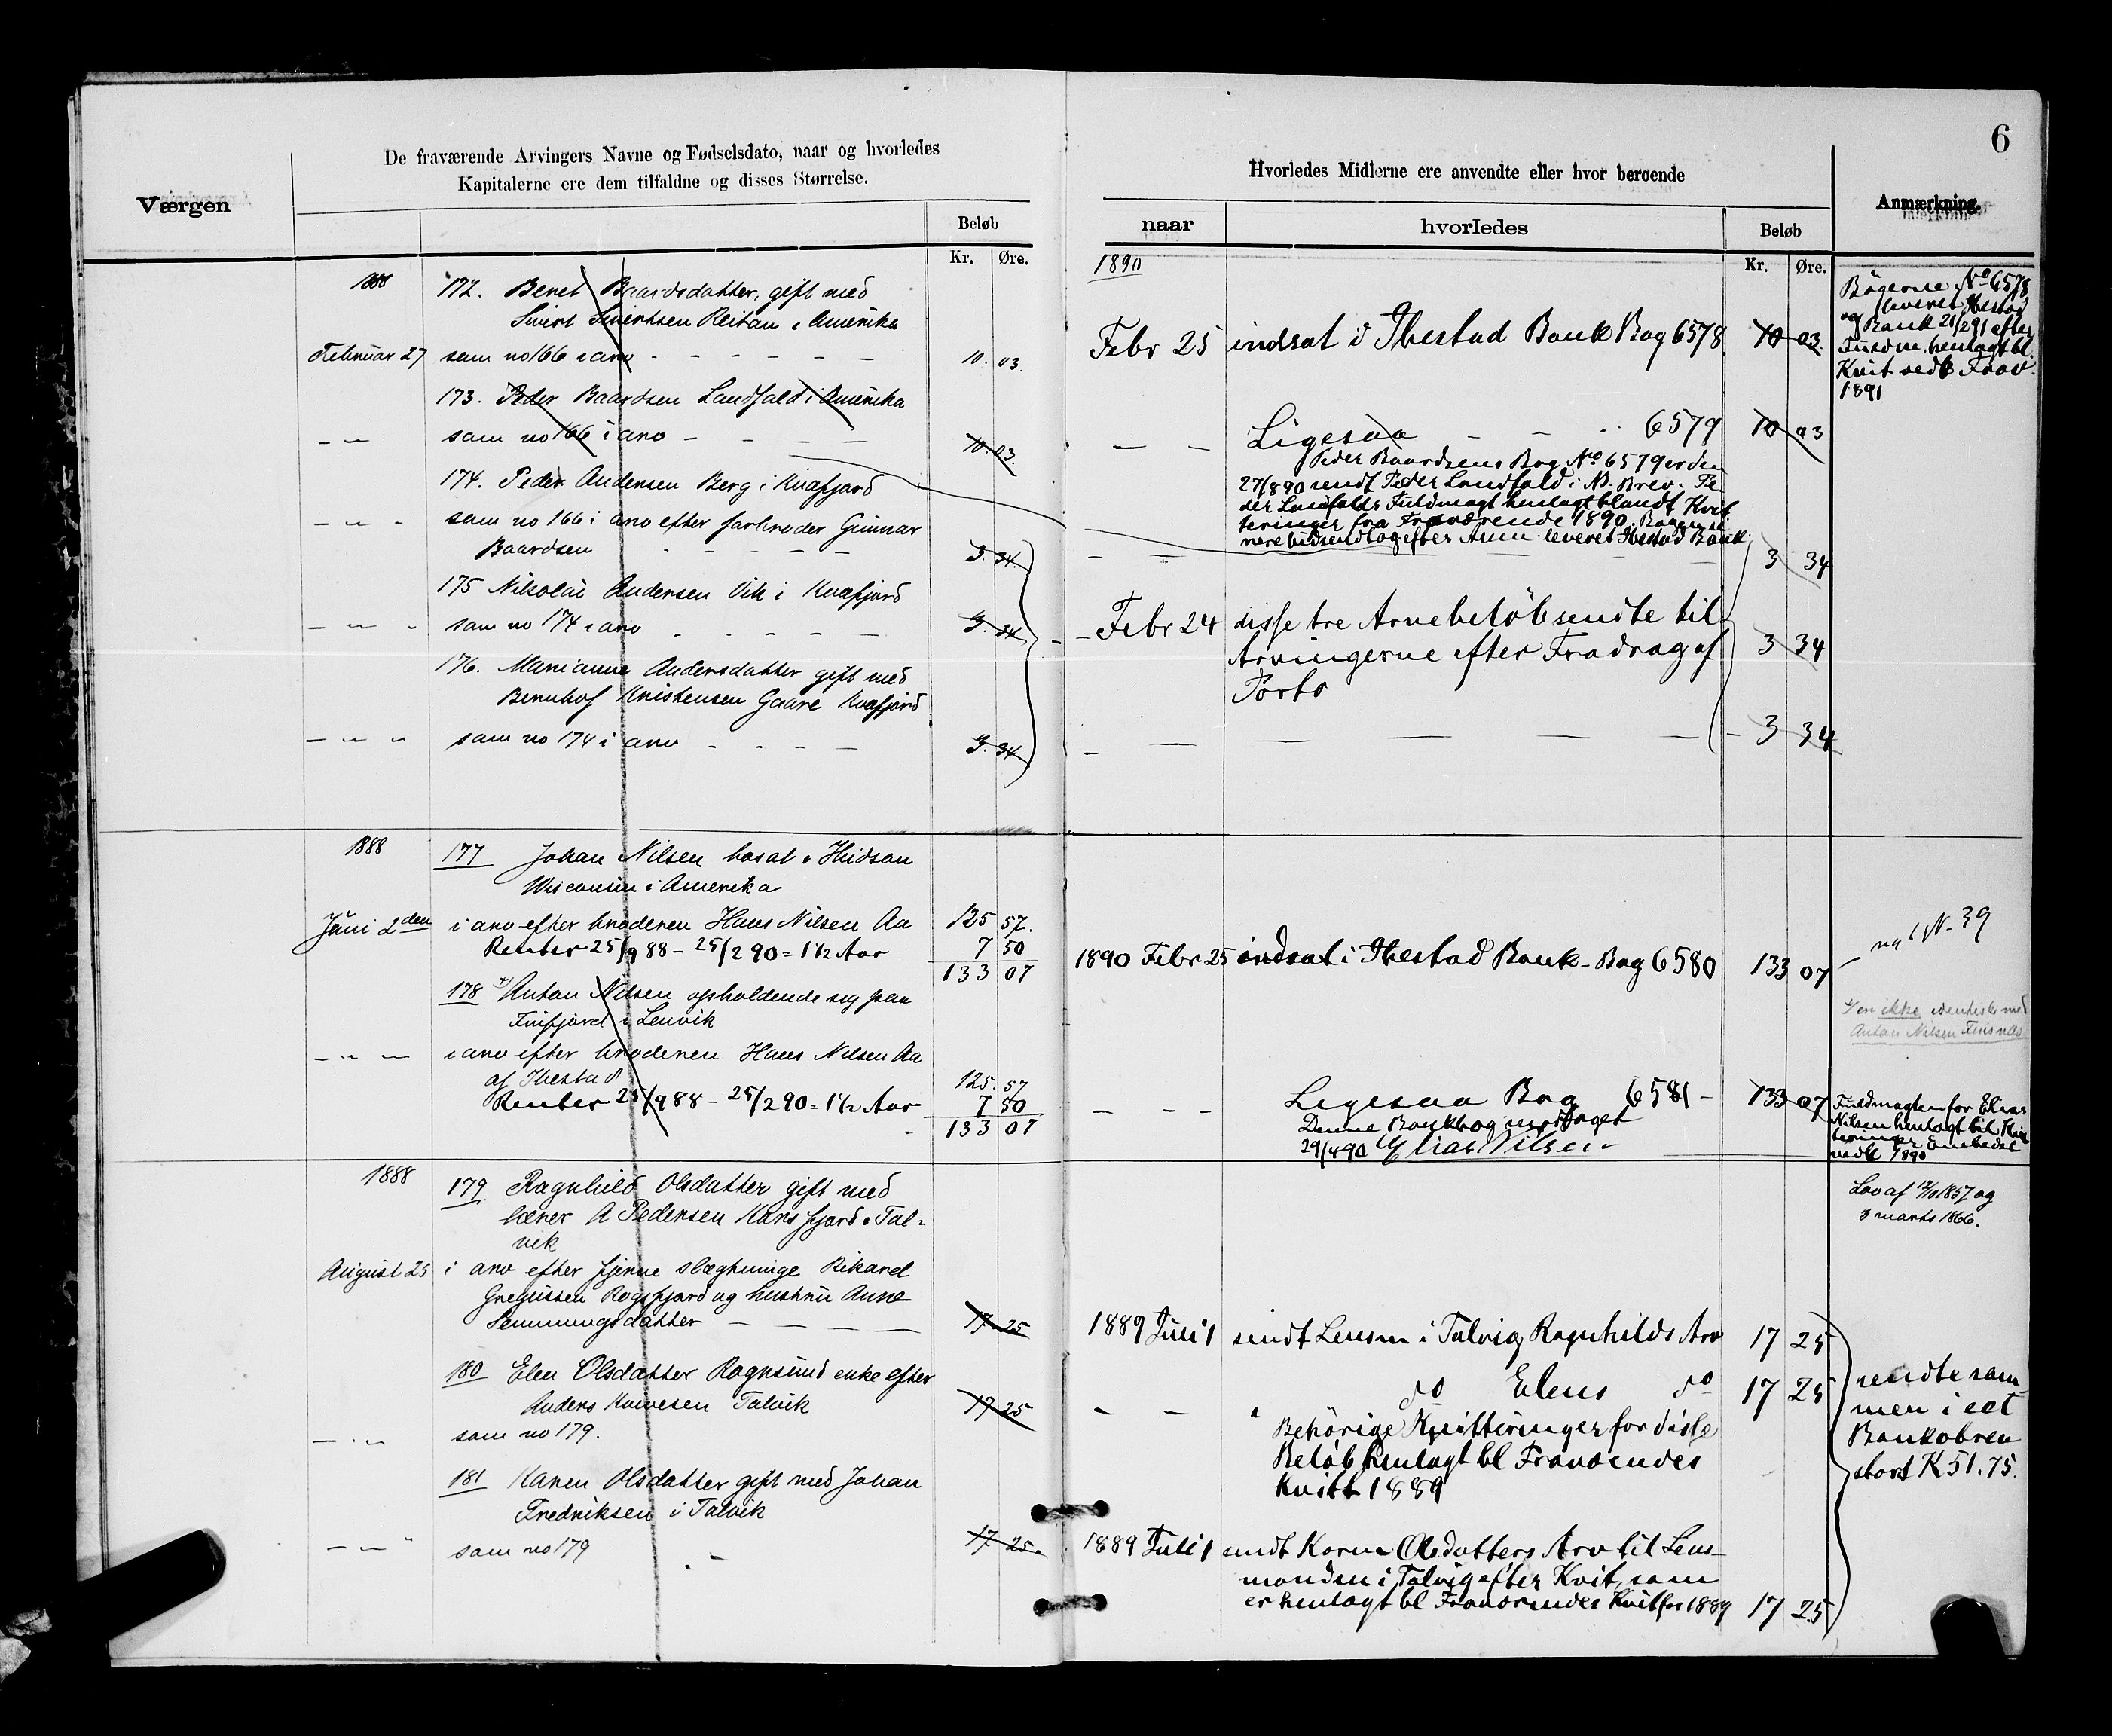 6
Værgen
De fraværende Arvingers Navne og Fødselsdato, naar og hvorledes
Kapitalerne ere dem tilfaldne og disses Størrelse.
Beløb
Kr. Øre.
1888
172. Beret Baardsdatter, gift med
Sivert Sivertsen Reitan i Amerika
Februar 27 som no 166 i arv - - - - - - 10. 03.
173. Peder Baardsen Landfald i Amerika
— „ — som no 166 i arv - - - - 10. 03.
174. Peder Andersen Berg i Kvæfjord
— „ - som no 166 i arv efter farbroder Gunnar
Baardsen - - - - - 3. 34.
175 Nikolai Andersen Vik i Kvæfjord
— „ - som no 174 i arv - - - - - 3. 34
176. Marianne Andersdatter gift med
Bernhof Kristensen Gaare Kvæfjord
— „ „ som no 174 i arv - - - - 3. 34
1888
177 Johan Nilsen bosat i Hudson
Wisconsin i Amerika
Juni 2den i arv efter broderen Hans Nilsen Aa 125 57.
Renter 25/9 88 - 25/2 90 = 1 1/2 Aar 7 50
133 07
178 Anton Nilsen opholdende sig paa
Finfjord i Lenvik
— „ — i arv efter broderen Hans Nilsen Aa
af Ibestad 125. 57
Renter 25/9 88 - 25/2 90 = 1 1/2 Aar 7 50
133 07
1888
179 Ragnhild Olsdatter gift med
lærer A Pedersen Korsfjord i Tal-
vik
August 25 i arv efter fjerne slægtninge Rikard
Gregusen Rogsfjord og hustru Anne
Semmingsdatter — — — — 17. 25
180 Elen Olsdatter Rognsund enke efter
Anders Talvik 17. 25
— „ — som no 179.
181 Karen Olsdatter gift med Johan
Fredriksen i Talvik
— „ — som no 179 - — 17. 25.
Hvorledes Midlerne ere anvendte eller hvor beroende
naar hvorledes Beløb
Kr. Øre.
Anmærkning.
1890
Febr 25 indsat i Ibestad Bank Bog 6578 10 03.
Bøgerne No 6578
leveret Ibestad
og Bank 21/2 91 efter
Fuldm. henlagt bl.
Kvit vedk Frav.
1891
— — Ligesaa - - 6579 10 03
Peder Baardsens Bog No 6579 er den
27/8 90 sendt Peder Landfald i A. Brev. Pe
der Landfalds Fuldmagt henlagt blandt Kvit
teringer fra Fraværende 1890.
leveret Ibestad Bank.
- — — — — 3 34
Febr 24 disse tre Arvebeløb sendte til 3 34
Arvingerne efter Fradrag af
Porto
- — — — — — 3 34
1890 Febr 25 indsat i Ibestad Bank - Bog 6580 133 07
N. 39
er ikke identisk med
Anton Nilsen Finsnæs
— — — Ligesaa Bog 6581 - 133 07
Denne Bankbog modtaget
29/4 90 Elias Nilsen
Fuldmagten for Elias
Nilsen henlagt til Kvit
teringer Embedet
vedk 1890
Lov af 12/10 1857 og
3 marts 1866.
1889 Juli 1 sendt Lensm i Talvig Ragnhilds Arv 17 25
— — " do Elens do 17 25
Behørige Kvitteringer for disse
Beløb henlagt bl Fraværendes
Kvitt 1889
1889 Juli 1 sendt Karen Olsdatters Arv til Lens-
manden i Talvig efter Kvit, som
er henlagt bl Fraværendes Kvit for 1889 17 25
sendte sam-
men i eet
Bankobrev
stort K 51.75.